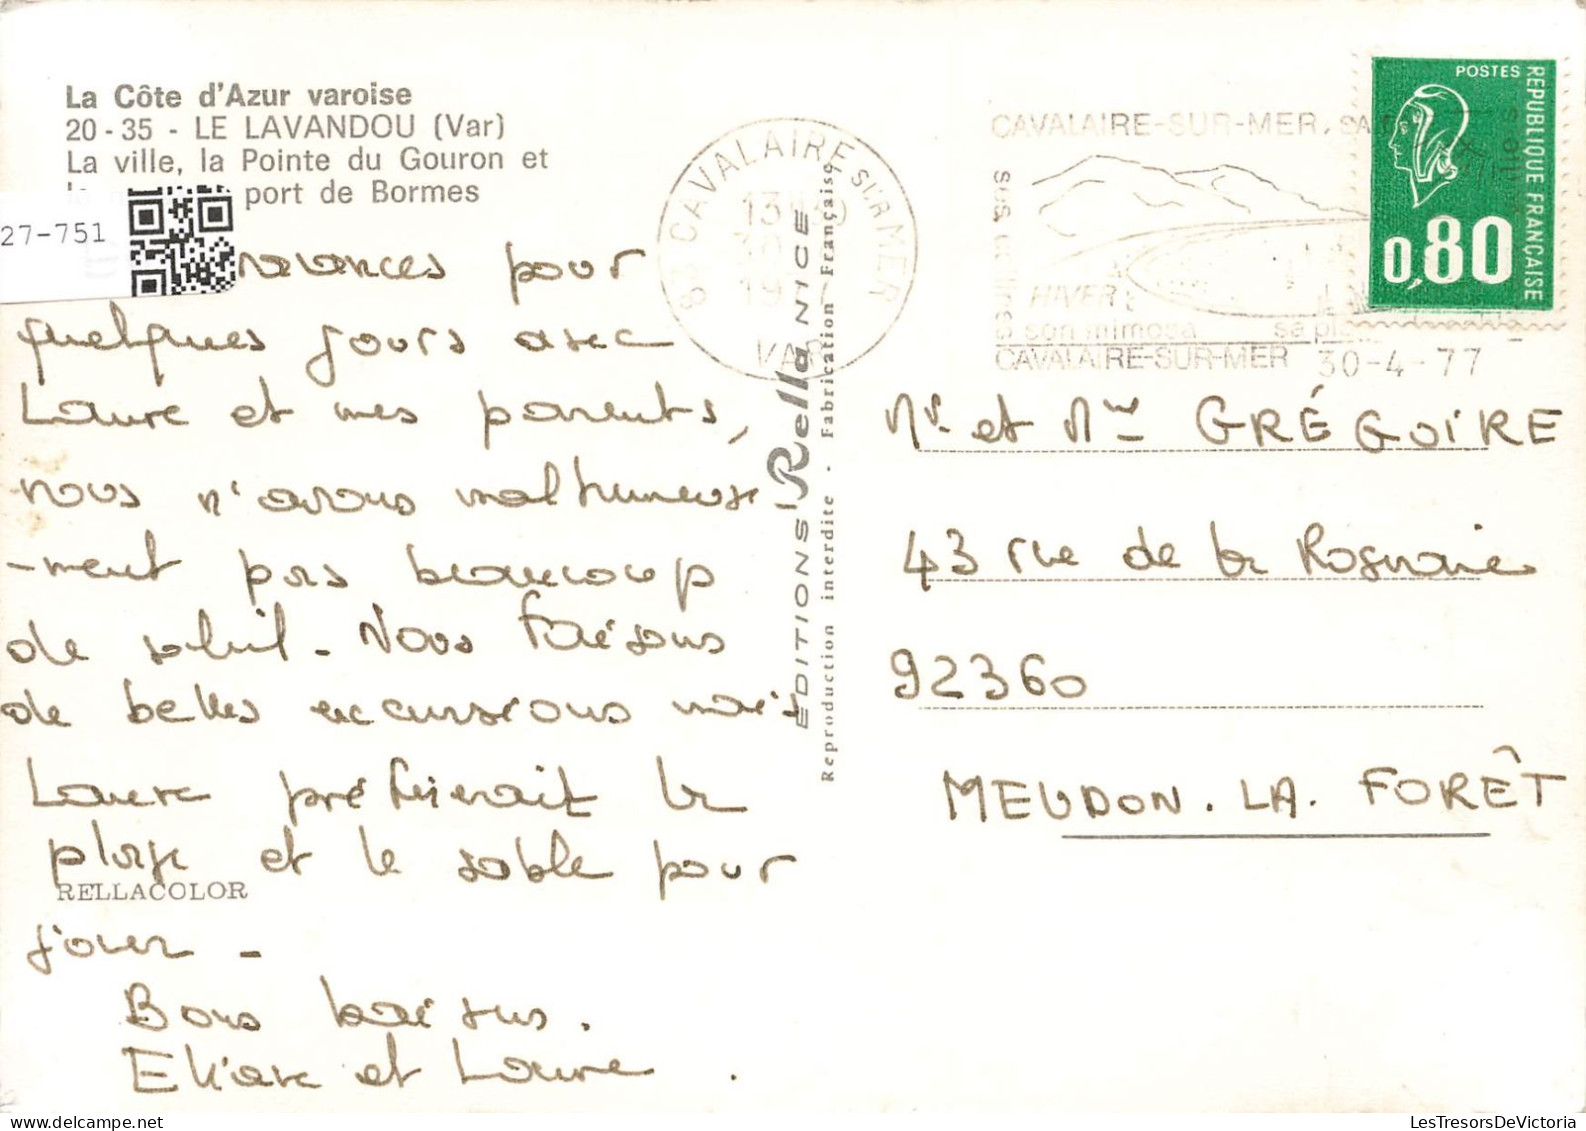 La Côte d'Azur varoise
20-35 - LE LAVANDOU (Var)
La ville, la Pointe du Gouron et
port de Bormes
27-751
vacances pour
quelques jours avec
Laure et mes parents,
nous n'avons malheureuse
-ment pas beaucoup
de soleil - Nous faisons
de belles excursions mais
Laure préfèrerait la
plage et le sable pour
jouer -
Bons baisers.
Eliane et Laure.
RELLACOLOR
EDITIONS Rella NICE
Reproduction interdite - Fabrication Française
83 CAVALAIRE SUR MER
VAR
CAVALAIRE-SUR-MER, SA
HIVER
son mimosa sa
CAVALAIRE-SUR-MER 30-4-77
POSTES
REPUBLIQUE FRANÇAISE
0,80
Mr et Mme GRÉGOIRE
43 rue de la
92360
MEUDON. LA. FORÊT
LesTresorsDeVictoria